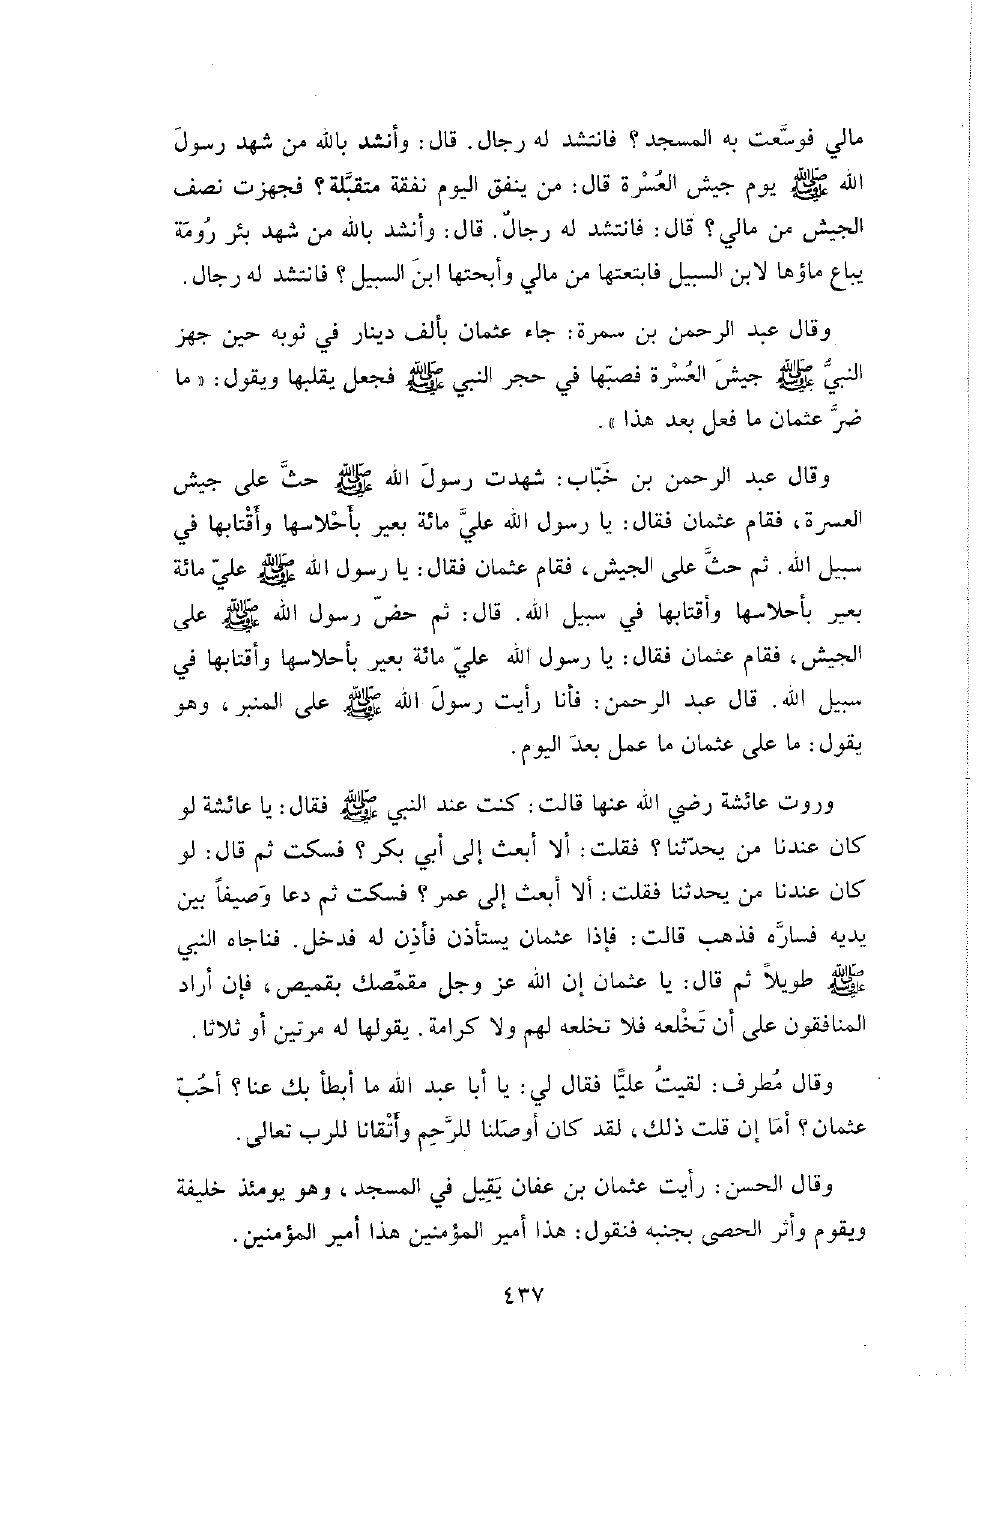 مالي فوسَّعت به المسجد؟ فانتشد له رجال. قال: وأنشد بالله من شهد رسولَ
الله ﷺ يوم جيش العُسْرة قال: من ينفق اليوم نفقة متقبَّلة؟ فجهزت نصف
الجيش من مالي؟ قال: فانتشد له رجالٌ. قال: وأنشد بالله من شهد بئر رُومَة
يباع ماؤها لابن السبيل فابتعتها من مالي وأبحتها ابنَ السبيل؟ فانتشد له رجال.
وقال عبد الرحمن بن سمرة: جاء عثمان بألف دينار في ثوبه حين جهز
النبيُّ ﷺ جيشَ العُسْرة فصبّها في حجر النبي ﷺ فجعل يقلبها ويقول: «ما
ضرَّ عثمان ما فعل بعد هذا».
وقال عبد الرحمن بن خَبّاب: شهدت رسولَ الله ﷺ حثَّ على جيش
العسرة، فقام عثمان فقال: يا رسول الله عليَّ مائة بعير بأَحْلاسها وأَقْتابها في
سبيل الله. ثم حثَّ على الجيش، فقام عثمان فقال: يا رسول الله ﷺ عليّ مائة
بعير بأحلاسها وأقتابها في سبيل الله. قال: ثم حضّ رسول الله ﷺ على
الجيش، فقام عثمان فقال: يا رسول الله عليّ مائة بعير بأحلاسها وأقتابها في
سبيل الله. قال عبد الرحمن: فأنا رأيت رسولَ الله ﷺ على المنبر، وهو
يقول: ما على عثمان ما عمل بعدَ اليوم.
وروت عائشة رضي الله عنها قالت: كنت عند النبي ﷺ فقال: يا عائشة لو
كان عندنا من يحدّثنا؟ فقلت: ألا أبعث إلى أبي بكر؟ فسكت ثم قال: لو
كان عندنا من يحدثنا فقلت: ألا أبعث إلى عمر؟ فسكت ثم دعا وَصيفاً بين
يديه فسارَّه فذهب قالت: فإذا عثمان يستأذن فأذِن له فدخل. فناجاه النبي
ﷺ طويلاً ثم قال: يا عثمان إن الله عز وجل مقمِّصك بقميص، فإن أراد
المنافقون على أن تَخْلعه فلا تخلعه لهم ولا كرامة. يقولها له مرتين أو ثلاثا.
وقال مُطرف: لقيتُ عليًّا فقال لي: يا أبا عبد الله ما أبطأ بك عنا؟ أحُبّ
عثمان؟ أمَا إن قلت ذلك، لقد كان أوصَلنا للرَّحِم وأَتْقانا للرب تعالى.
وقال الحسن: رأيت عثمان بن عفان يَقِيل في المسجد، وهو يومئذ خليفة
ويقوم وأثر الحصى بجنبه فنقول: هذا أمير المؤمنين هذا أمير المؤمنين.
٤٣٧